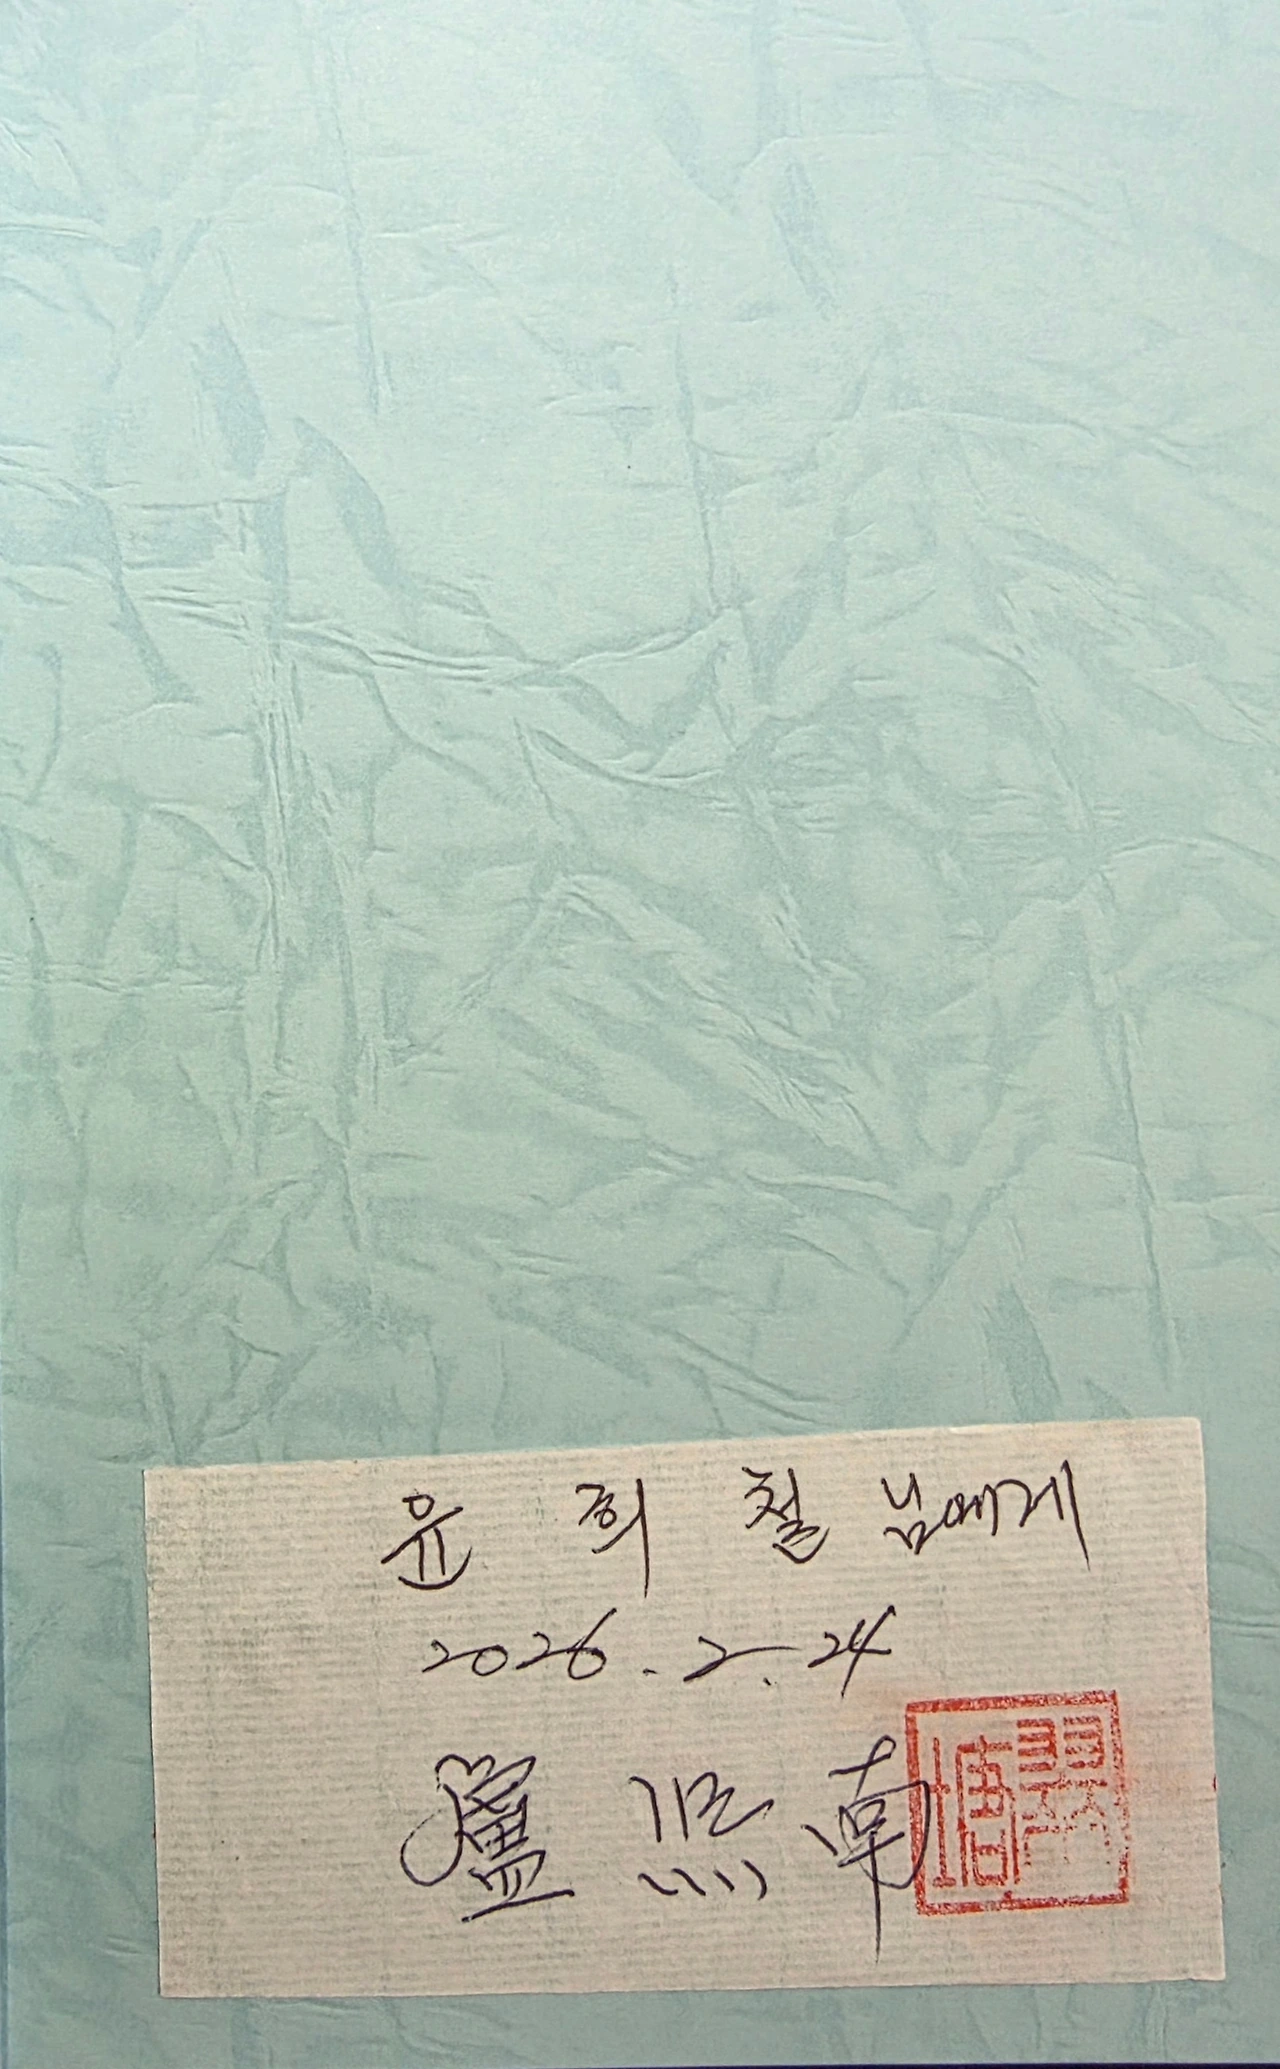 윤 희 철 님에게
2026. 2. 24
盧 熙 南